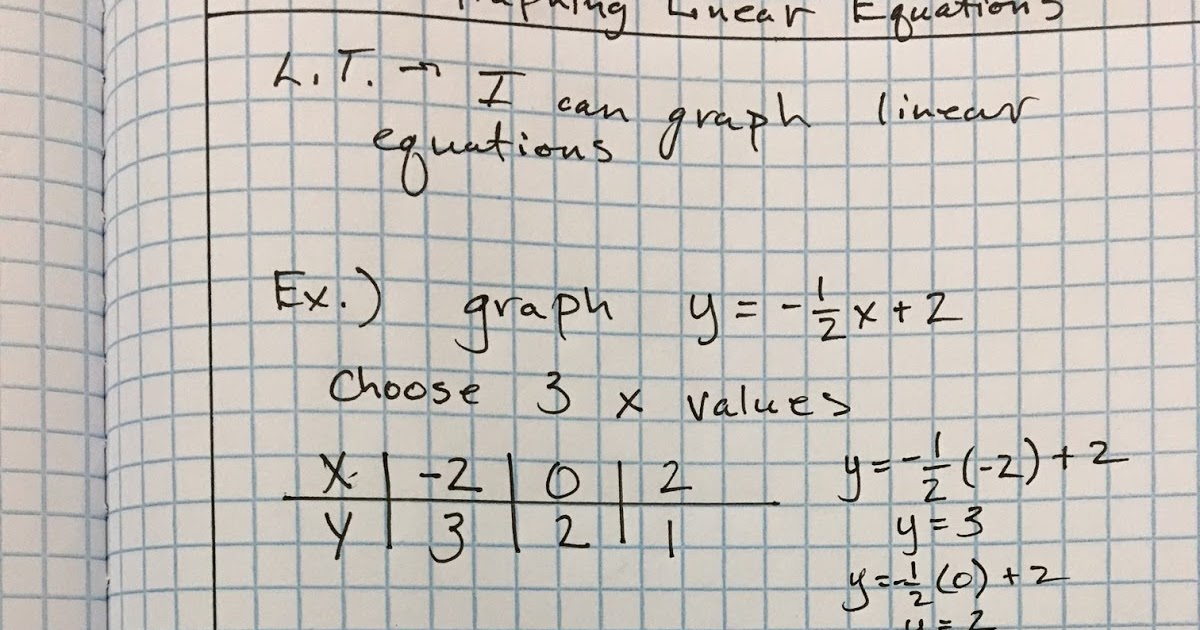 Graphing Linear Equations
L.T. → I can graph linear
equations
Ex.) graph y = -1/2 x + 2
Choose 3 x values
x | -2 | 0 | 2
y | 3 | 2 | 1
y = -1/2 (-2) + 2
y = 3
y = -1/2 (0) + 2
y = 2